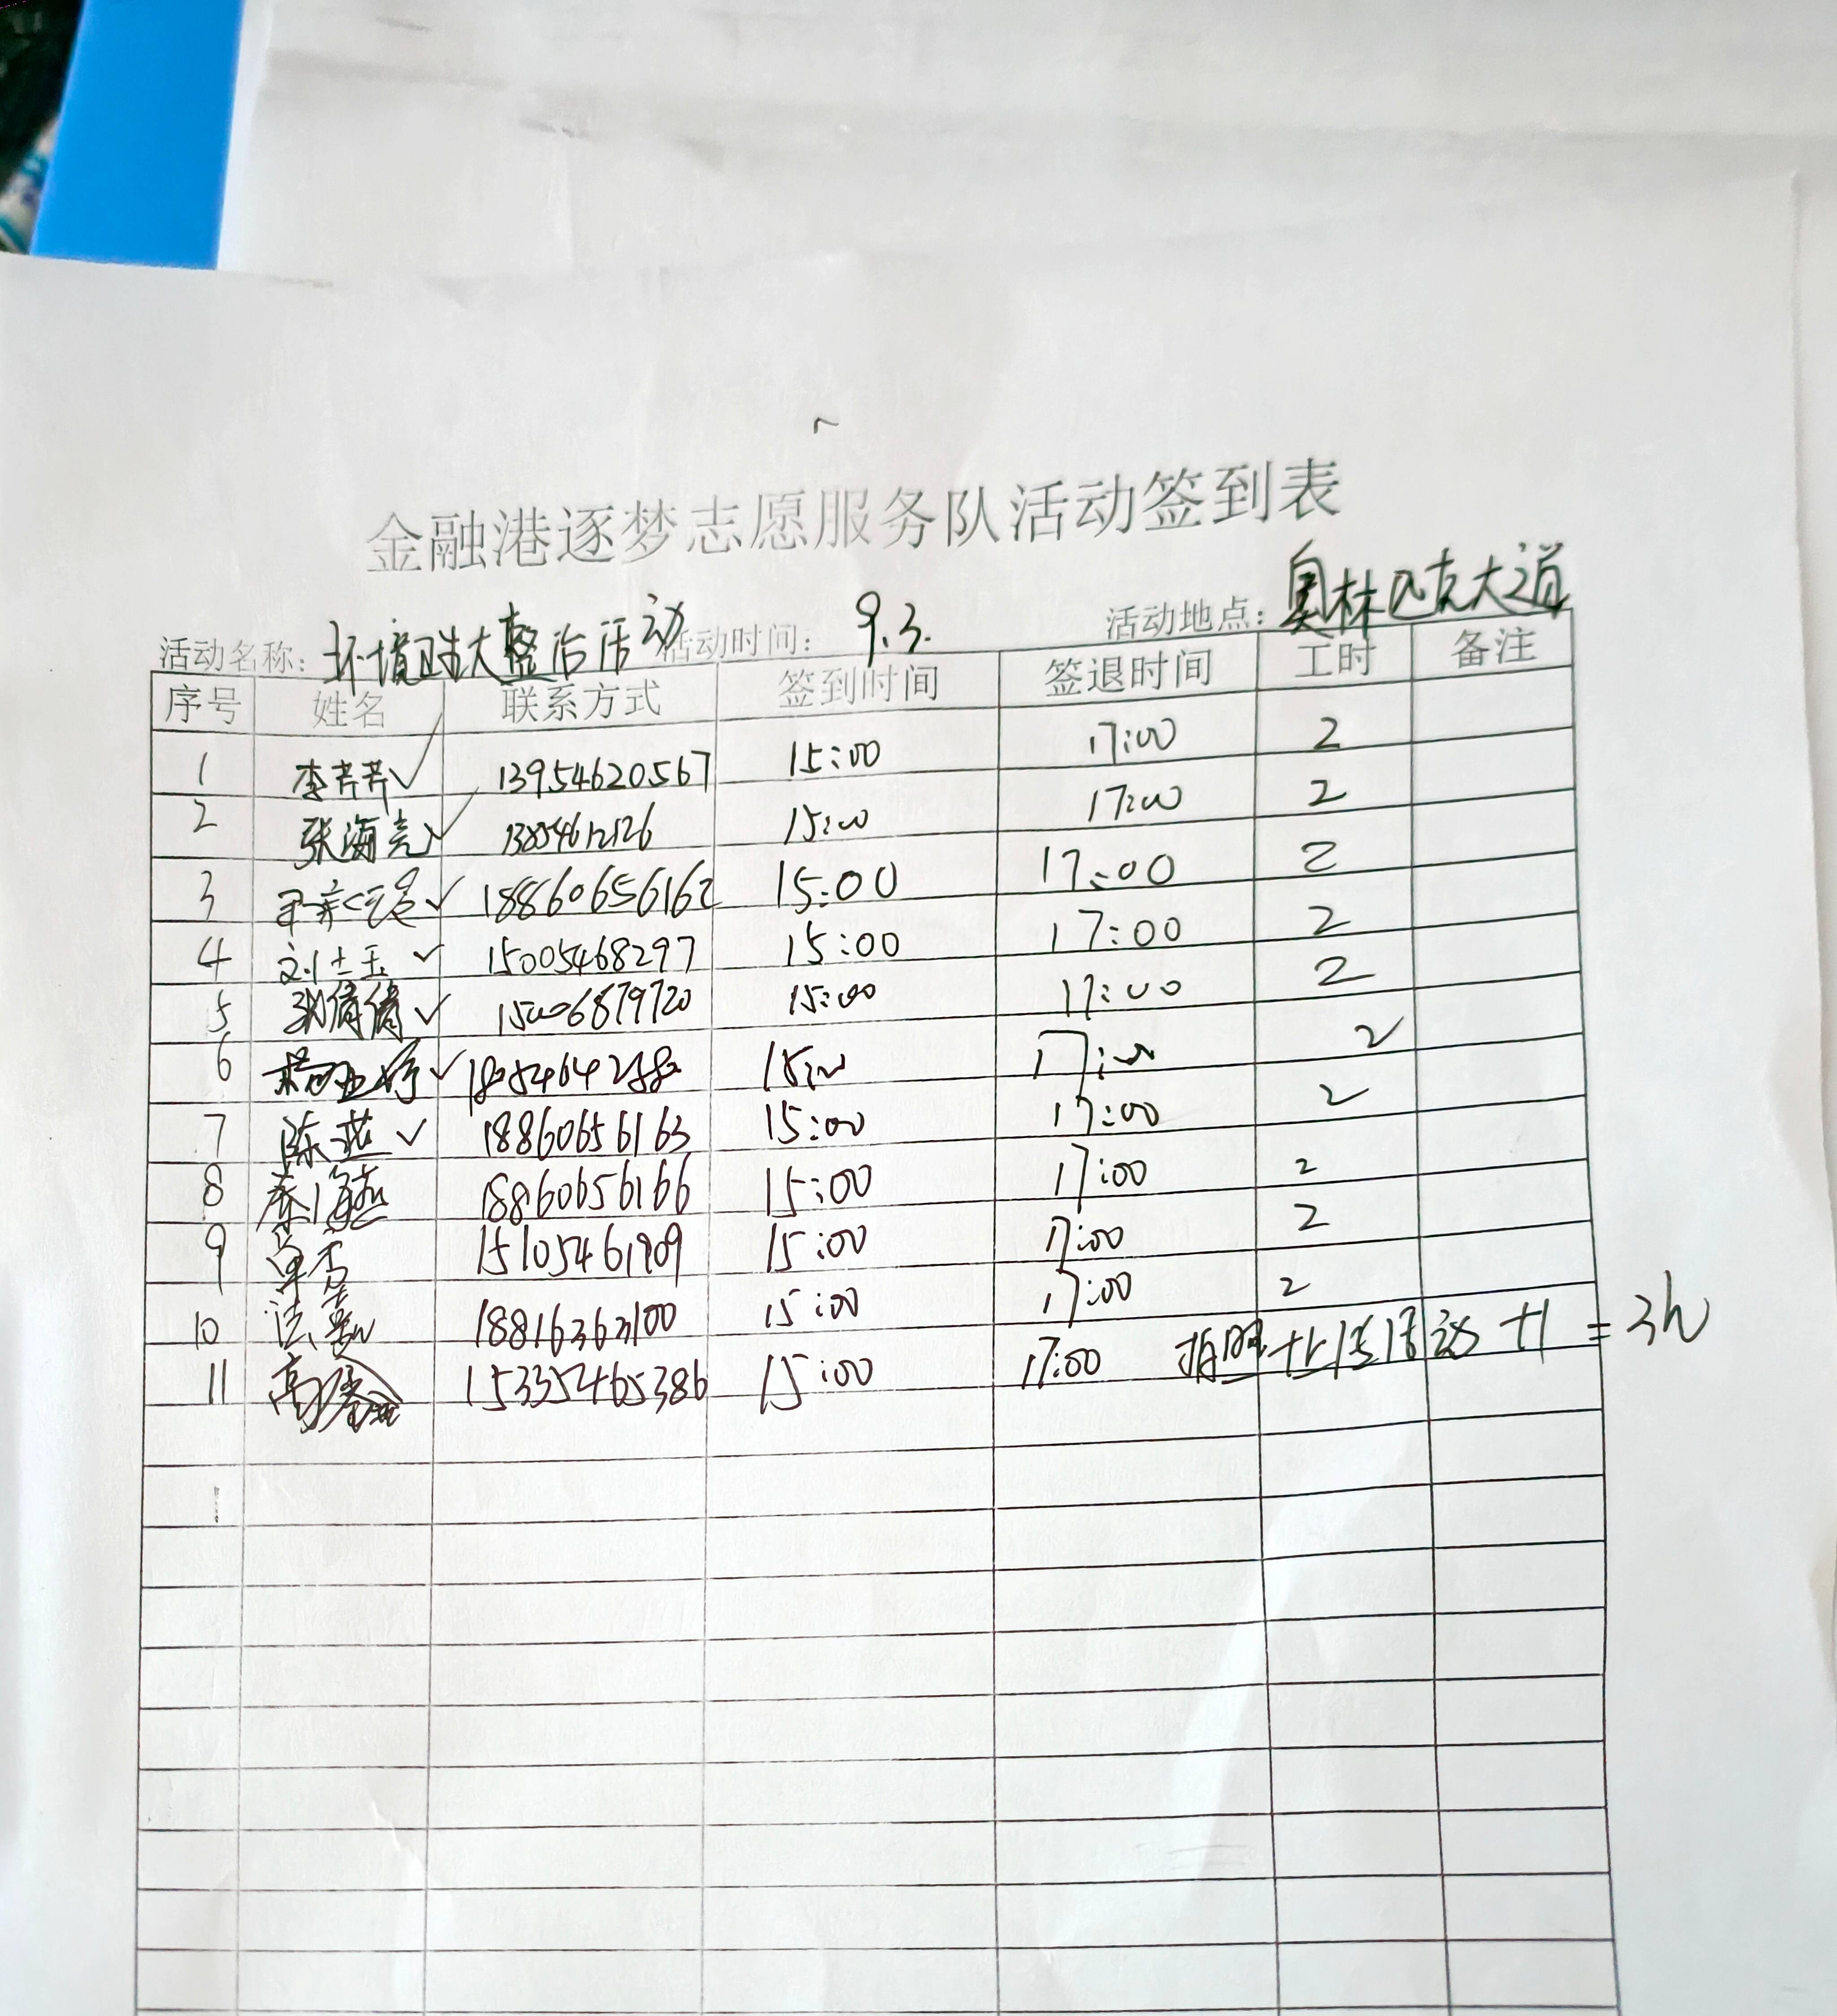 金融港逐梦志愿服务队活动签到表
活动名称: 环境卫生大整治活动 活动时间: 9.3. 活动地点: 奥林匹克大道
序号 姓名 联系方式 签到时间 签退时间 工时 备注
1 李芹芹 13954620567 15:00 17:00 2
2 张海亮 15:00 17:00 2
3 18860656162 15:00 17:00 2
4 15005468297 15:00 17:00 2
5 倩倩 15006879720 15:00 17:00 2
6 15:00 17:00 2
7 陈燕 18860656163 15:00 17:00 2
8 秦海燕 18860656166 15:00 17:00 2
9 单秀 15105461909 15:00 17:00 2
10 15:00 17:00 2
11 高 15:00 17:00 活动+1=3h